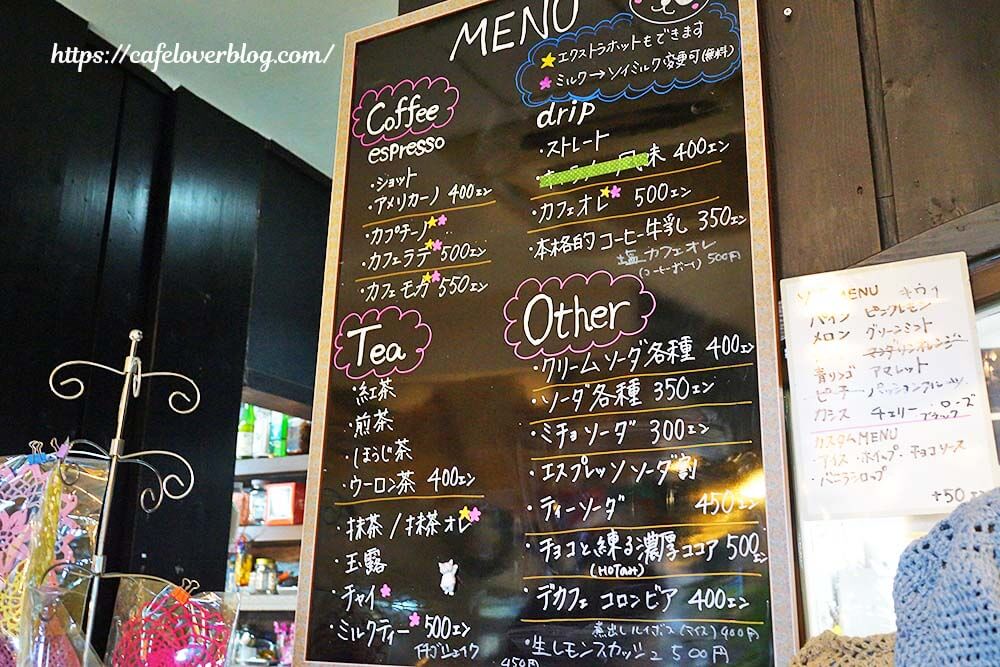 https://cafeloverblog.com/
MENU
★エクストラホットもできます
ミルク→ソイミルク変更可(無料)
Coffee
espresso
・ショット
・アメリカーノ 400エン
・カプチーノ
・カフェラテ 500エン
・カフェモカ 550エン
drip
・ストレート
400エン
・カフェオレ 500エン
・本格的コーヒー牛乳 350エン
塩カフェオレ
500円
Tea
・紅茶
・煎茶
・ほうじ茶
・ウーロン茶 400エン
・抹茶/抹茶オレ
・玉露
・チャイ
・ミルクティー 500エン
450円
Other
・クリームソーダ各種 400エン
・ソーダ各種 350エン
・ミチョソーダ 300エン
・エスプレッソソーダ割
・ティーソーダ 450エン
・チョコと練る濃厚ココア 500エン
(HOTのみ)
・デカフェ コロンビア 400エン
煮出しルイボス(アイス)400円
・生レモンスカッシュ 500円
MENU キウイ
パイン ピンクレモン
メロン グリーンミント
マンダリンオレンジ
青リンゴ アマレット
ピーチ パッションフルーツ
カシス チェリー ローズ
ブラック
カスタムMENU
・アイス・ホイップ・チョコソース
・バニラシロップ
+50エン